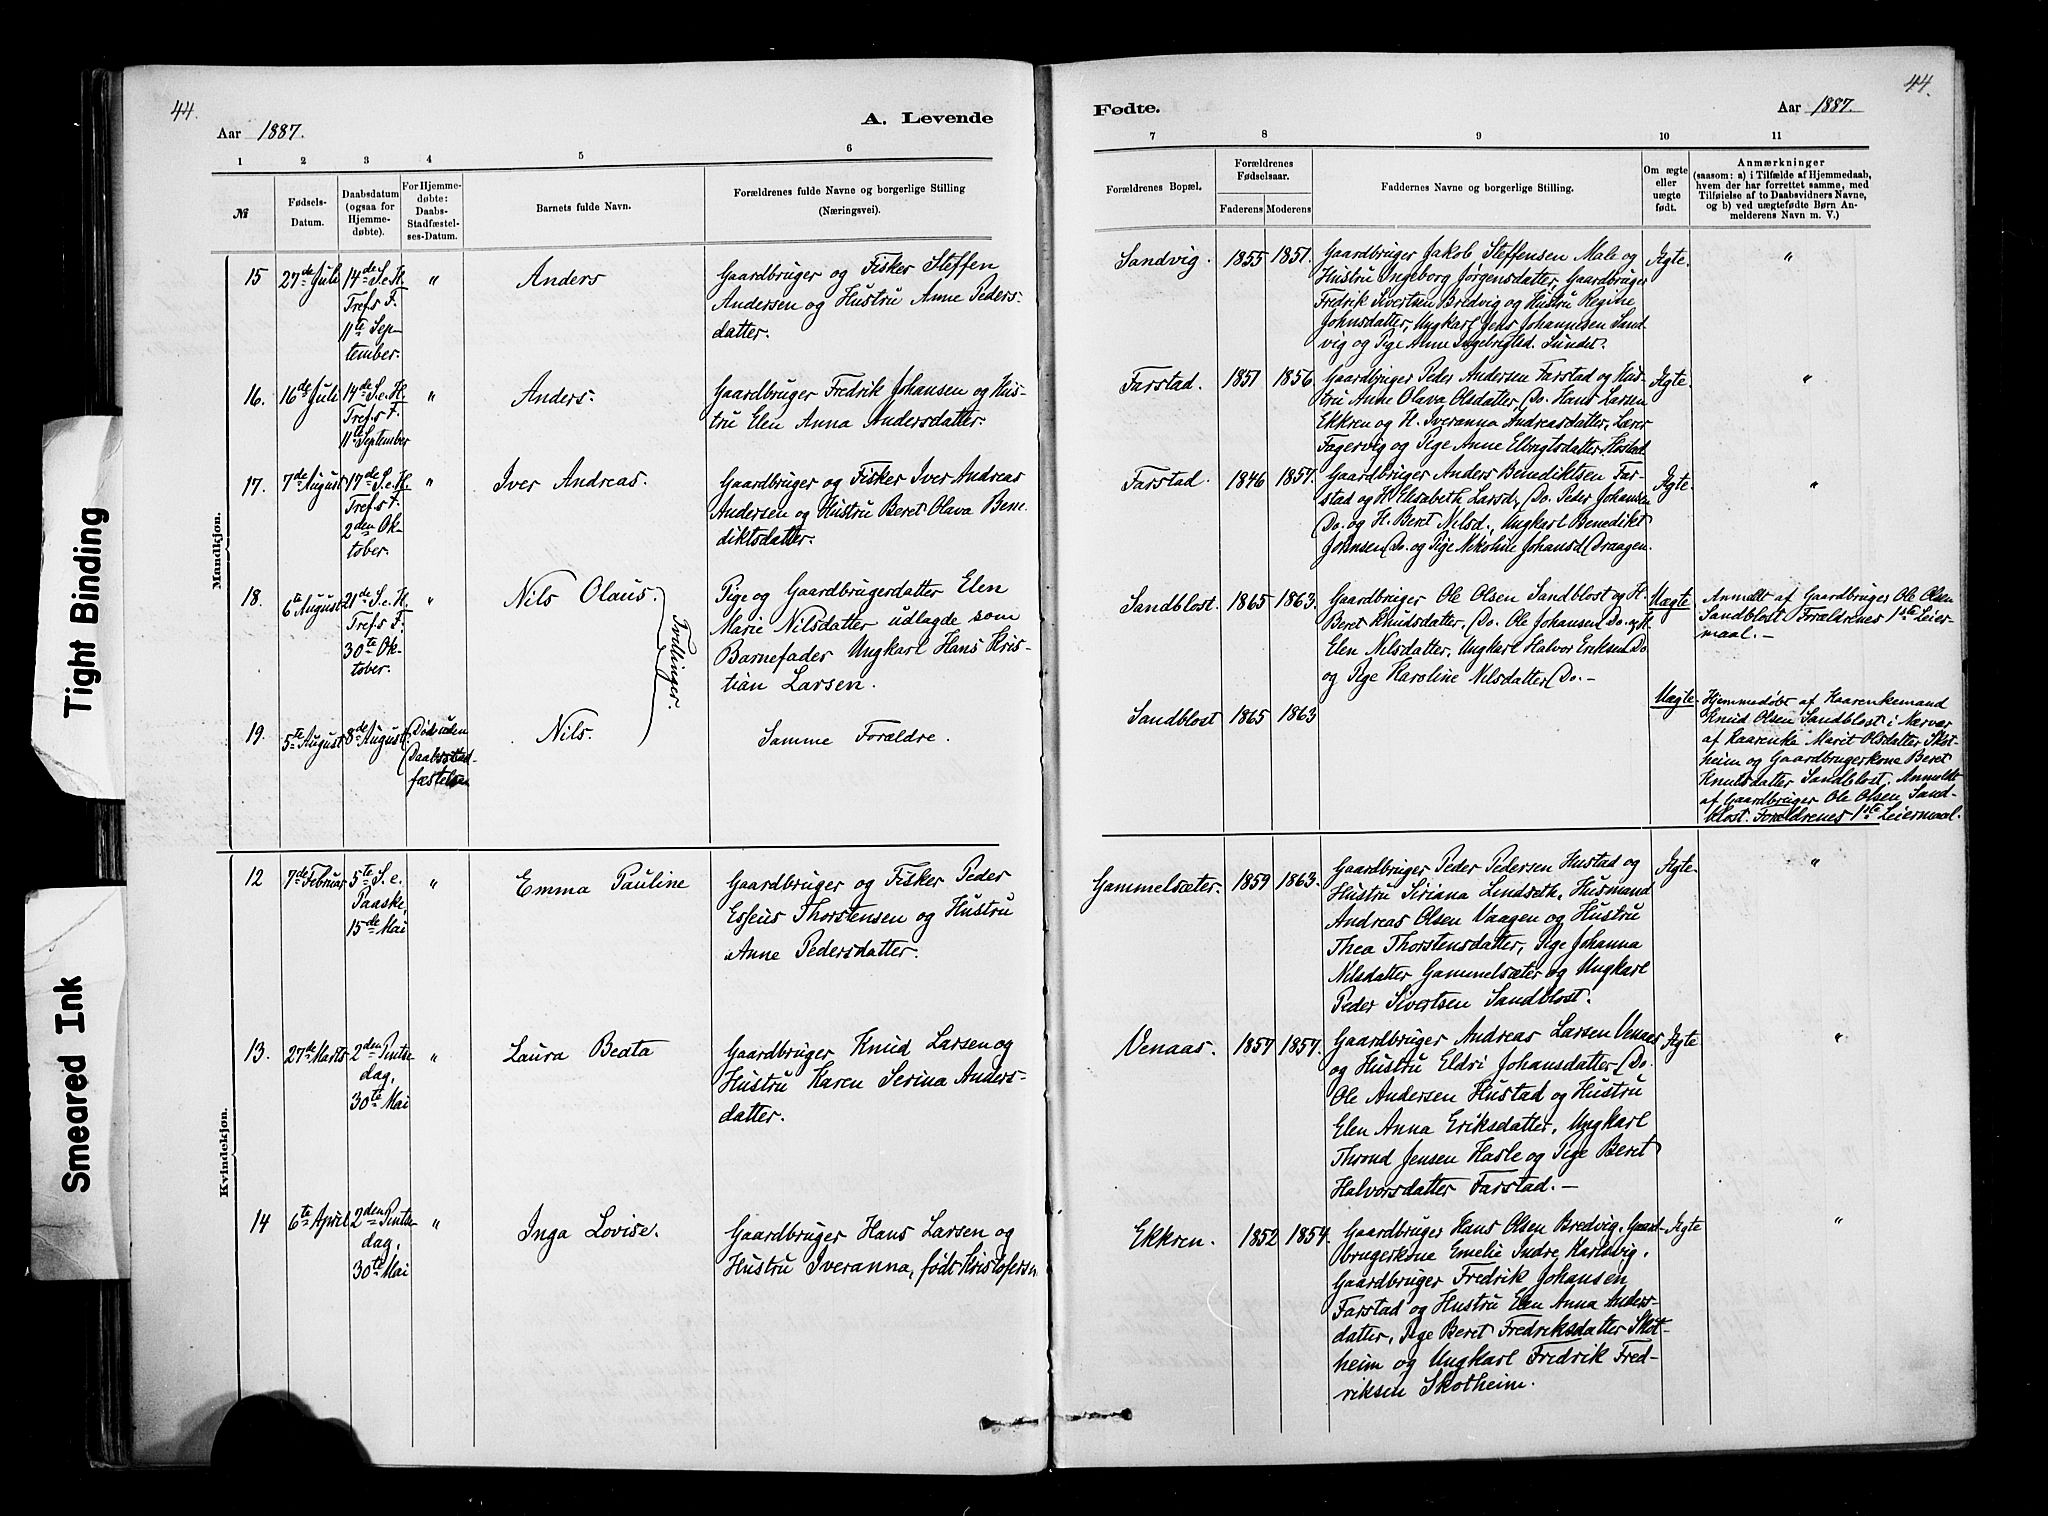 44.
Aar 1887.
A. Levende
1 2 3 4 5 6
№
Fødsels-
Datum.
Daabsdatum
(ogsaa for
Hjemme-
døbte).
For Hjemme-
døbte:
Daabs-
Stadfæstel-
ses-Datum.
Barnets fulde Navn.
Forældrenes fulde Navne og borgerlige Stilling
(Næringsvei).
Mandkjøn.
15
27de Juli
14de S. e. H.
Trefs F.
11te Sep-
tember.
"
Anders
Gaardbruger og Fisker Steffen
Andersen og Hustru Anne Peders-
datter.
16.
16de Juli
14de S. e. H.
Trefs F.
11te September
"
Anders.
Gaardbruger Fredrik Johansen og Hus-
tru Elen Anna Andersdatter.
17.
7de August
17de S. e. H.
Trefs F.
2den Ok-
tober.
"
Iver Andreas.
Gaardbruger og Fisker Iver Andreas
Andersen og Hustru Beret Olava Bene
diktsdatter.
18.
6te August
21de S. e. H.
Trefs F.
30te Ok-
tober.
"
Nils Olaus.
Tvillinger.
Pige og Gaardbrugerdatter Elen
Marie Nilsdatter udlagde som
Barnefader Ungkarl Hans Kris-
tian Larsen.
19.
5te August
8de August
Død uden
Daabsstad-
fæstelsen
Nils.
Samme Forældre.
Kvindekjøn.
12
7de Februar
5te S. e.
Paaske,
15de Mai
"
Emma Pauline
Gaardbruger og Fisker Peder
Esseus Thorstensen og Hustru
Anne Pedersdatter.
13.
27de Marts
2den Pintse
dag,
30te Mai
"
Laura Beata
Gaardbruger Knud Larsen og
Hustru Karen Serina Anders-
datter.
14
6te April
2den Pintse
dag,
30te Mai
"
Inga Lovise.
Gaardbruger Hans Larsen og
Hustru Iveranna, født Kristofersen
44.
Fødte.
Aar 1887.
7 8 9 10 11
Forældrenes Bopæl.
Forældrenes
Fødselsaar.
Faderens Moderens
Faddernes Navne og borgerlige Stilling.
Om ægte
eller
uægte
født.
Anmærkninger
(saasom: a) i Tilfælde af Hjemmedaab,
hvem der har forrettet samme, med
Tilføielse af to Daabsvidners Navne,
og b) ved uægtefødte Børn An-
melderens Navn m. V.)
Sandvig. 1855 1851.
Gaardbruger Jakob Steffensen Male og
Hustru Ingeborg Jørgensdatter, Gaardbruger
Fredrik Sivertsen Bredvig og Hustru Regine
Johnsdatter, Ungkarl Jens Johannesen Sand-
vig og Pige Anne Ingebrigtsd. Sundet.
Ægte.
"
Farstad. 1851 1856
Gaardbruger Peder Andersen Farstad og Hus-
tru Anne Olava Olsdatter, Do. Hans Larsen
Ekkren og H. Iveranna Andreasdatter, Lærer
Fagervig og Pige Anne Hostad
Ægte
"
Farstad. 1846 1857.
Gaardbruger Anders Benediktsen Far-
stad og H. Elisabeth Larsd., Do. Peder Johansen
Do. og H. Beret Nilsd., Ungkarl Benedikt
Johnsen Do. og Pige Nikoline Johansd. Draagen.
Ægte.
"
Sandblost. 1865 1863.
Gaardbruger Ole Olsen Sandblost og H.
Beret Knudsdatter, Do. Ole Johansen Do. og H.
Elen Nilsdatter, Ungkarl Halvor Eriksen Do
og Pige Karoline Nilsdatter Do.-
Uægte
Anmeldt af Gaardbruger Ole Olsen
Sandblost Forældrenes 1ste Leier-
maal.-
Sandblost 1865 1863
Uægte.
Hjemmedøbt af Kaarenkemand
Knud Olsen Sandblost i Nærvær
af Kaarenke Marit Olsdatter Skot-
heim og Gaardbrugerkone Beret
Knutsdatter Sandblost. Anmeldt
af Gaardbruger Ole Olsen Sand-
blost. Forældrenes 1ste Leiermaal.
Gammelsæter. 1859 1863.
Gaardbruger Peder Pedersen Hustad og
Hustru Siriana Lindseth, Husmand
Andreas Olsen Vaagen og Hustru
Thea Thorstensdatter, Pige Johanna
Nilsdatter Gammelsæter og Ungkarl
Peder Sivertsen Sandblost.
Ægte.
"
Venaas. 1857 1857.
Gaardbruger Andreas Larsen Venaas
og Hustru Eldri Johansdatter, Do.
Ole Andersen Hustad og Hustru
Elen Anna Eriksdatter, Ungkarl
Thrond Jensen Hasle og Pige Beret
Halvorsdatter Farstad.-
Ægte
"
Ekkren. 1852 1854.
Gaardbruger Hans Olsen Bredvig, Gaard-
brugerkone Emelie Indre Karlsvig,
Gaardbruger Fredrik Johansen
Farstad og Hustru Elen Anna Anders-
datter, Pige Beret Fredriksdatter Skot-
heim og Ungkarl Fredrik Fred-
riksen Skotheim.
Ægte
"
Tight Binding
Smeared Ink